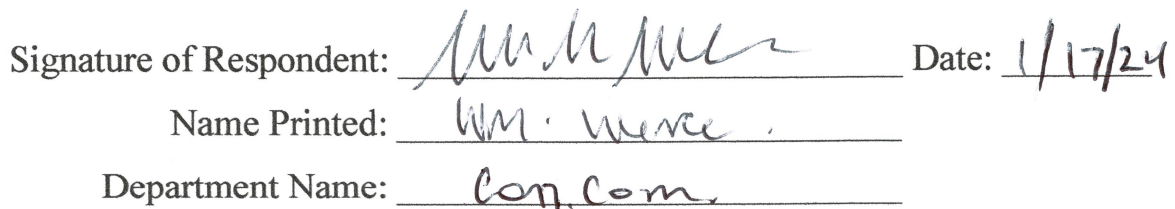 Signature of Respondent: Date: 1/17/24
Name Printed: Wm.
Department Name: Con. Com.